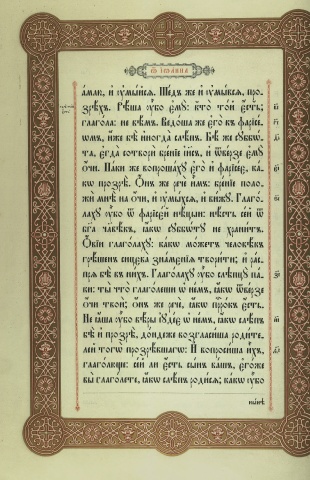 Ѿ іѡанна
амлѧ, и҆ ᲂу҆мы́йсѧ. Ше́дъ же и҆ ᲂу҆мы́всѧ, про-
зрѣ́хъ. Рѣ́ша ᲂу҆̀бо є҆мꙋ̀: кто̀ то́й є҆́сть;
глаго́ла: не вѣ́мъ. Ведо́ша же є҆го̀ къ фарїсе́-
ѡмъ, и҆́же бѣ̀ и҆ногда̀ слѣ́пъ. Бѣ́ же сꙋббѡ́-
та, є҆гда̀ сотворѝ бре́нїе і҆и҃съ, и҆ ѿве́рзе є҆мꙋ̀
ѻ҆́чи. Па́ки же вопроша́хꙋ є҆го̀ и҆ фарїсе́є,
ка́кѡ прозрѣ̀. Ѻ҆́нъ же речѐ и҆̀мъ: бре́нїе поло-
жѝ мнѣ̀ на ѻ҆́чи, и҆ ᲂу҆мы́хсѧ, и҆ ви́жꙋ. Глаго́-
лахꙋ ᲂу҆̀бо ѿ фарїсє́й нѣ́цыи: нѣ́сть се́й ѿ
бг҃а чл҃вѣ́къ, ꙗ҆́кѡ сꙋббѡ́тꙋ не храни́тъ.
Ѻ҆́вїи глаго́лахꙋ: ка́кѡ мо́жетъ человѣ́къ
грѣ́шенъ си́цєва зна́мєнїѧ твори́ти; и҆ ра́с-
прѧ бѣ̀ въ ни́хъ. Глаго́лахꙋ ᲂу҆̀бо слѣпцꙋ̀ па́-
ки: ты̀ что̀ глаго́леши ѡ҆ не́мъ, ꙗ҆́кѡ ѿве́рзе
ѻ҆́чи твоѝ; ѻ҆́нъ же речѐ, ꙗ҆́кѡ пр҇ро́къ є҆́сть.
Не ꙗ҆́ша ᲂу҆̀бо вѣ́ры і҆ꙋде́є ѡ҆ не́мъ, ꙗ҆́кѡ слѣ́пъ
бѣ̀ и҆ прозрѣ̀, до́ндеже возгласи́ша роди́те-
лѧ̑ того̀ прозрѣ́вшагѡ: И҆ вопроси́ша и҆̀хъ,
глаго́люще: се́й ли є҆́сть сы́нъ ва́ю, є҆го́же
вы̀ глаго́лете, ꙗ҆́кѡ слѣ́пъ роди́сѧ; ка́кѡ ᲂу҆̀бо
ны́нѣ